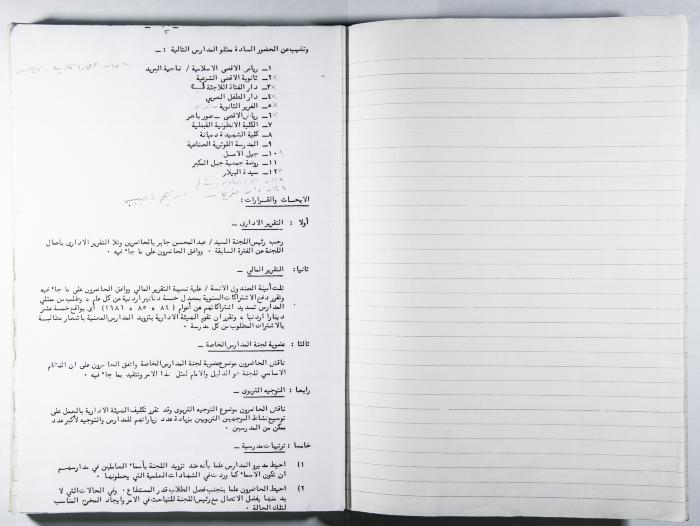 وتغيب عن الحضور السادة ممثلو المدارس التالية : ــ
١ــ رياض الاقصى الاسلامية / ضاحية البريد
٢ــ ثانوية الاقصى الشرعية
٣ــ دار الفتاة اللاجئة
٤ــ دار الطفل العربي
٥ــ الفرير الثانوية
٦ــ رياض الاقصى ــ صور باهر
٧ــ الكلية الانطونية القبطية
٨ــ كلية الشهيدة دميانة
٩ــ المدرسة اللوثرية الصناعية
١٠ــ جيل الامل
١١ــ روضة جمعية جبل المكبر
١٢ــ سيدة البيلار
الابحاث والقرارات :
أولا : التقرير الادارى ــ
رحب رئيس اللجنة السيد / عبد المحسن جابر بالحاضرين وتلا التقرير الادارى بأعمال
اللجنة عن الفترة السابقة ٠ ووافق الحاضرون على ما جاء فيه ٠
ثانيا : التقرير المالي ــ
تلت أمينة الصندوق الانسة / علية نسيبة التقرير المالي ووافق الحاضرون على ما جاء فيه
وتقرر دفع الاشتراكات السنوية بمعدل خمسة دنانير اردنية عن كل عام ٠ وطلب من ممثلي
المدارس تسديد اشتراكاتهم عن أعوام ( ٨٤ ، ٨٥ ، ١٩٨٦ ) أى بواقع خمسة عشر
دينارا اردنيا ، وتقرر ان تقوم الهيئة الادارية بتزويد المدارس المعنية باشعار مطالبة
بالاشتراك المطلوب من كل مدرسة ٠
ثالثا : عضوية لجنة المدارس الخاصة ــ
ناقش الحاضرون موضوع عضوية لجنة المدارس الخاصة واتفق الحاضرون على ان النظام
الاساسي للجنة هو الدليل والامام لمثل هذا الامر ونتقيد بما جاء فيه ٠
رابعا : التوجيه التربوى ــ
ناقش الحاضرون موضوع التوجيه التربوى وقد تقرر تكليف الهيئة الادارية بالعمل على
توسيع نشاط الموجهين التربويين بزيادة عدد زياراتهم للمدارس والتوجيه لأكبر عدد
ممكن من المدرسين ٠
خامسا : ترتيبات مدرسية ــ
١) احيط مديرو المدارس علما بأنه عند تزويد اللجنة بأسماء العاملين في مدارسهم
ان تكون الاسماء كما وردت في الشهادات العلمية التي يحملونها ٠
٢) احيط الحاضرون علما بتجنب فصل الطلاب قدر المستطاع ٠ وفي الحالات التي لا
بد منها يفضل الاتصال مع رئيس اللجنة للتباحث في الامر وايجاد المخرج المناسب
لتلك الحالة ٠